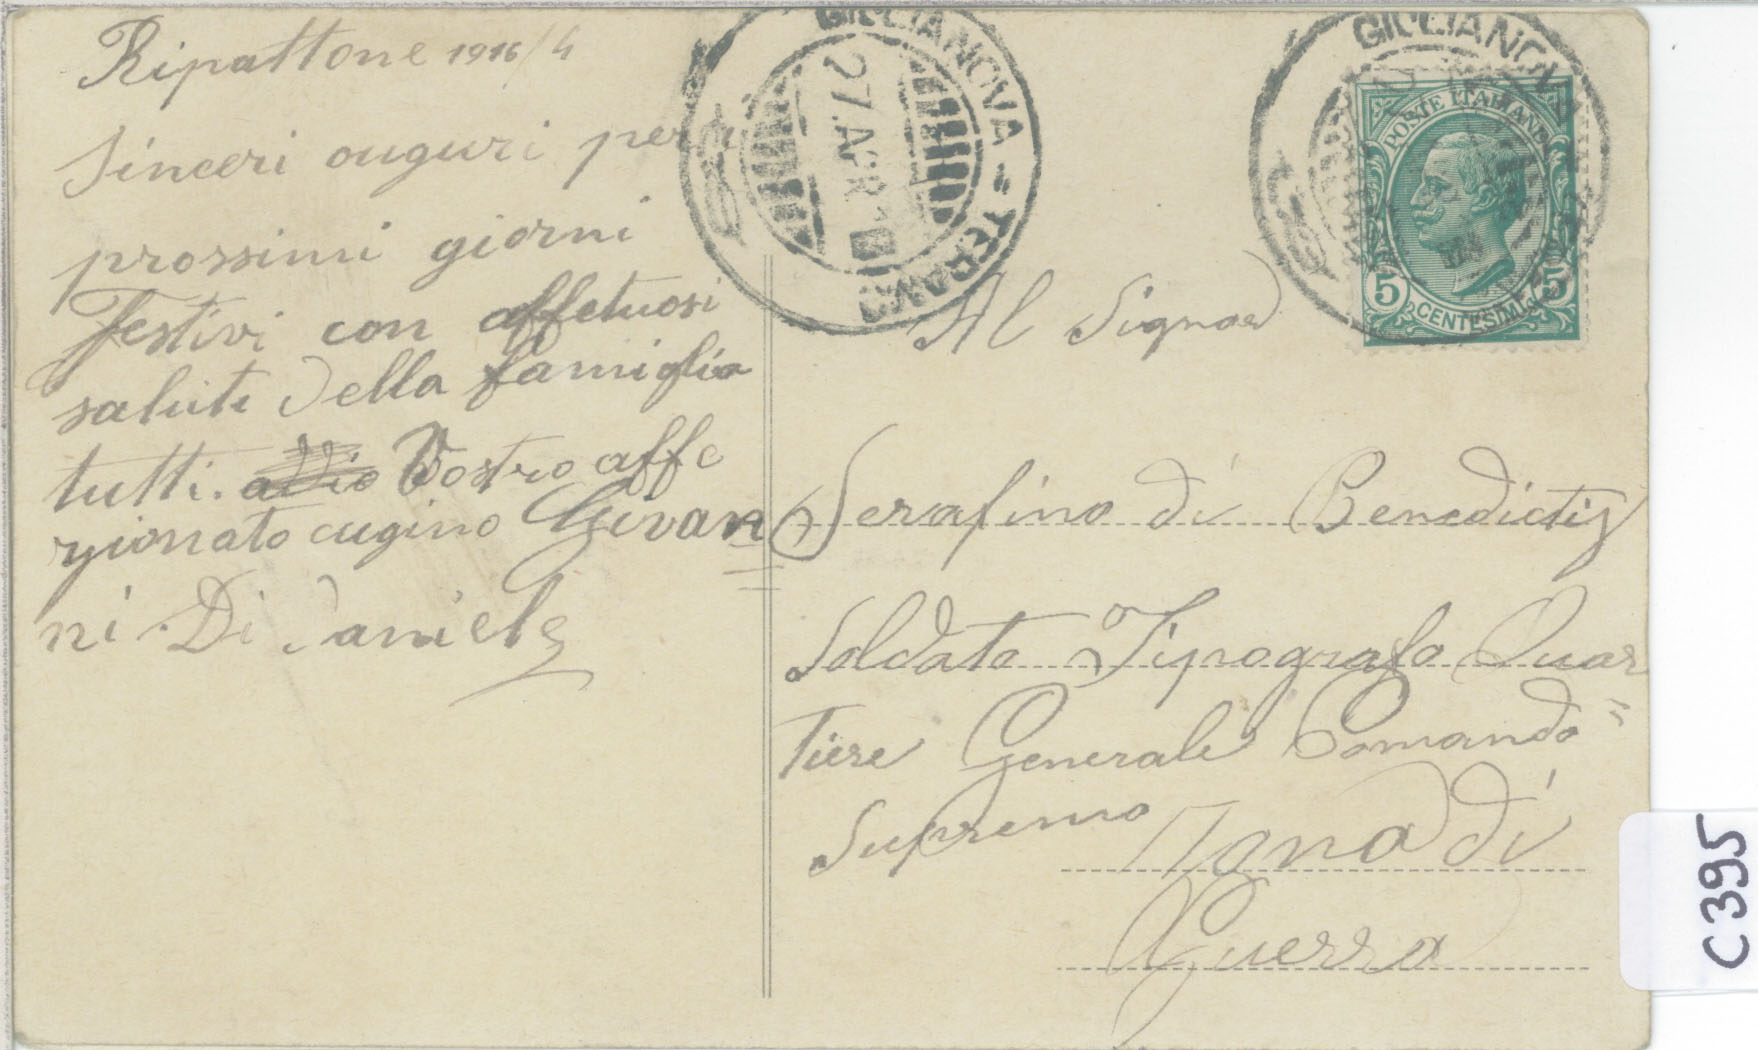 Ripattone 1916/4
Sinceri ouguri per i
prossimi giorni
Festivi con affetuosi
saluti della famiglia
tutti. addio Vostro affe
zionato cugino Giovan
ni Di Daniele
GIULIANOVA = TERAMO
27.APR.
GIULIANOVA
POSTE ITALIANE
5 5
CENTESIMI
Al Signor
Serafino di Benedictis
Soldato Tipografo Quar=
tiere Generale Comando
Supremo Zona di
Guerra
C395